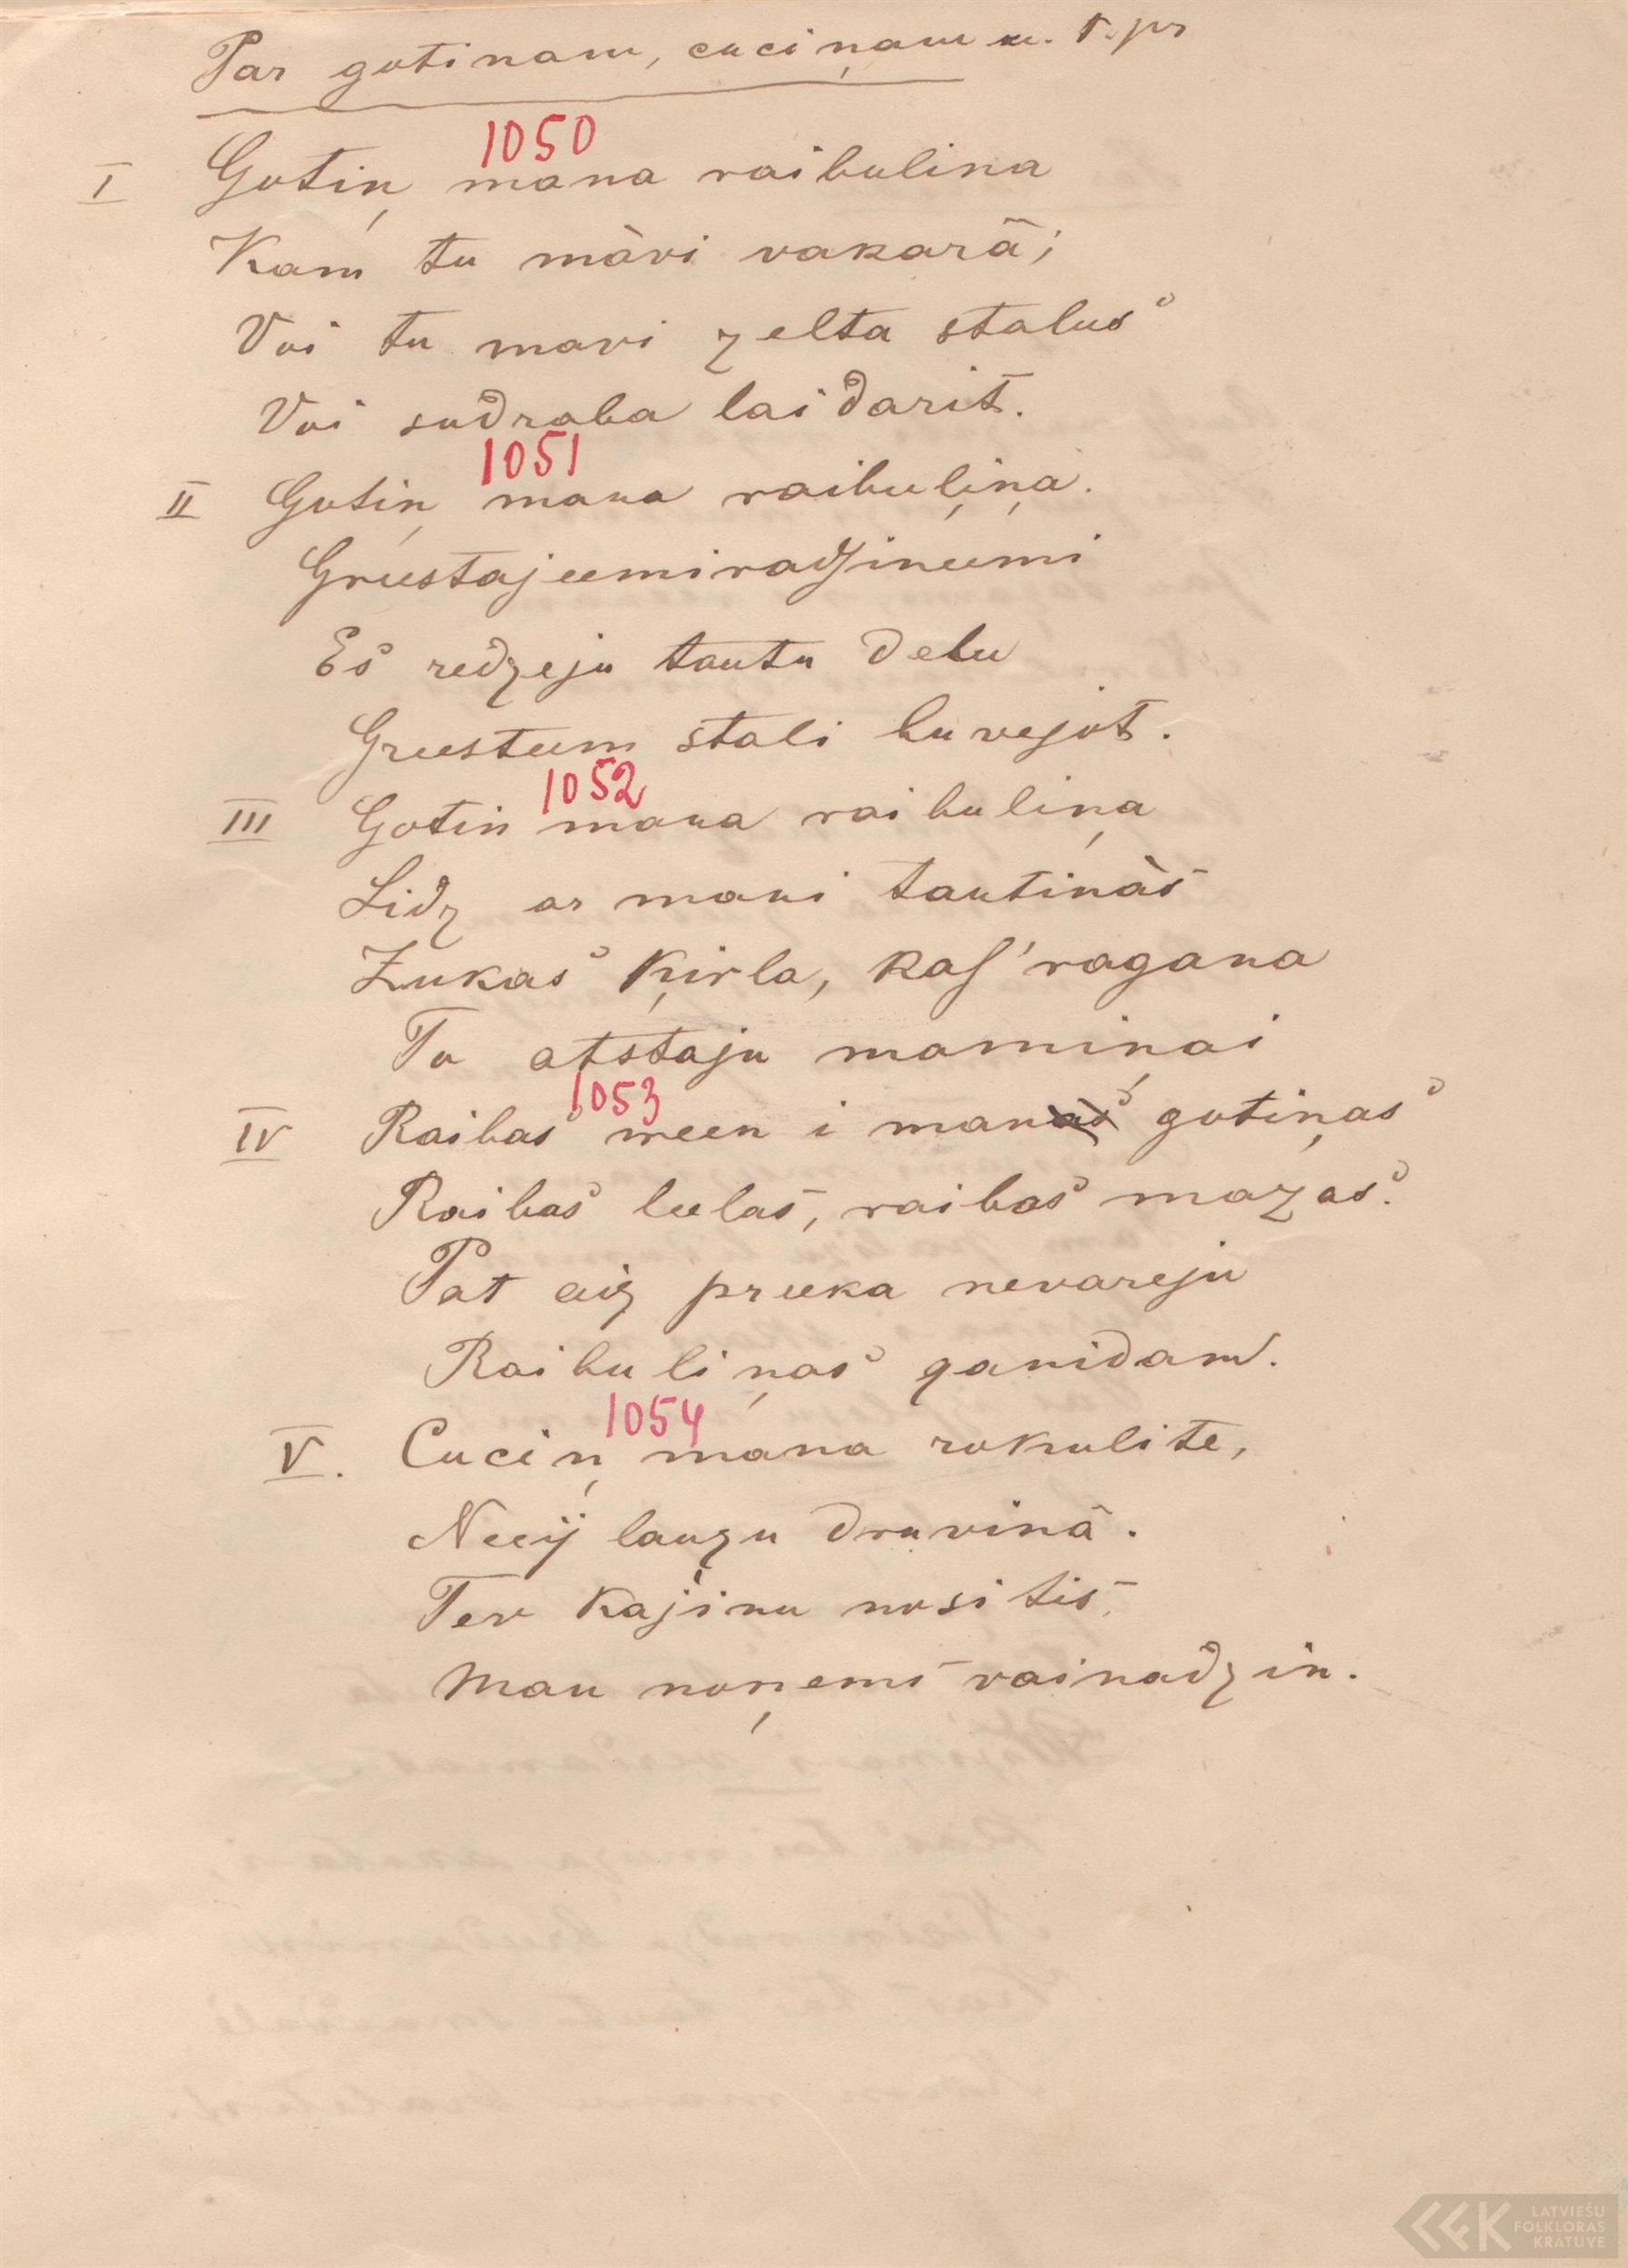 Par gotinam, cuciņam u. t. pr
1050
I Gotiņ mana raibulina
Kam tu māvi vakarā;
Voi tu mavi zelta stalus
Voi sudraba laidarit.
1051
II Gotiņ mana raibuļiņa.
Greestajeemi radzineemi
Es redzeju tautu delu
Greesteem stali buvejot.
1052
III Gotin mana raibuliņa
Lidz ar mani tautinās
Zukas ķirla, kas ragana
To atstaju mamiņai
1053
IV Raibas ween i manas gotiņas
Raibas leelas, raibas mazas.
Pat aiz preeka nevareju
Raibuliņas ganidam.
1054
V. Cuciņ mana rokulite,
Neeij lauzu druvinā.
Tev kajinu nositis,
Man noņems vainadzin.
LATVIEŠU
FOLKLORAS
KRĀTUVE